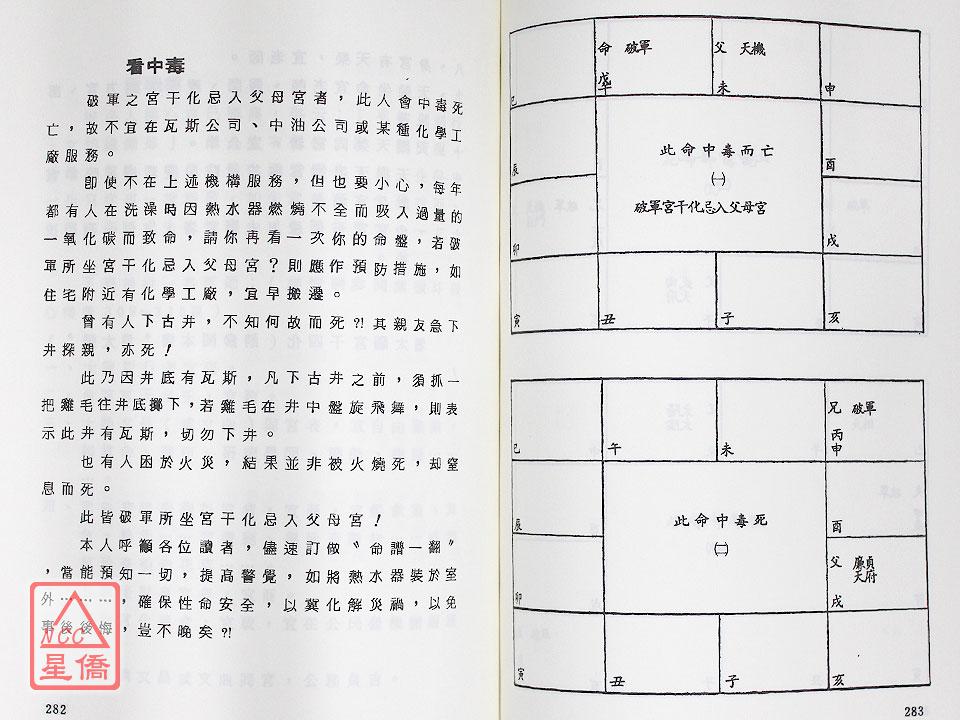 看中毒
破軍之宮干化忌入父母宮者，此人會中毒死
亡，故不宜在瓦斯公司、中油公司或某種化學工
廠服務。
即使不在上述機構服務，但也要小心，每年
都有人在洗澡時因熱水器燃燒不全而吸入過量的
一氧化碳而致命，請你再看一次你的命盤，若破
軍所坐宮干化忌入父母宮？則應作預防措施，如
住宅附近有化學工廠，宜早搬遷。
曾有人下古井，不知何故而死?!其親友急下
井探親，亦死！
此乃因井底有瓦斯，凡下古井之前，須抓一
把雞毛往井底擲下，若雞毛在井中盤旋飛舞，則表
示此井有瓦斯，切勿下井。
也有人困於火災，結果並非被火燒死，却窒
息而死。
此皆破軍所坐宮干化忌入父母宮！
本人呼籲各位讀者，儘速訂做〝命譜一翻〞
，當能預知一切，提高警覺，如將熱水器裝於室
外………，確保性命安全，以冀化解災禍，以免
事後後悔，豈不晚矣?!
NCC
星僑
282
命 破軍
父 天機
巳
戊午
未
申
辰
此命中毒而亡
酉
㈠
破軍宮干化忌入父母宮
卯
戌
寅
丑
子
亥
兄 破軍
丙
巳
午
未
申
辰
此命中毒死
酉
㈡
父 廉貞
天府
卯
戌
寅
丑
子
亥
283